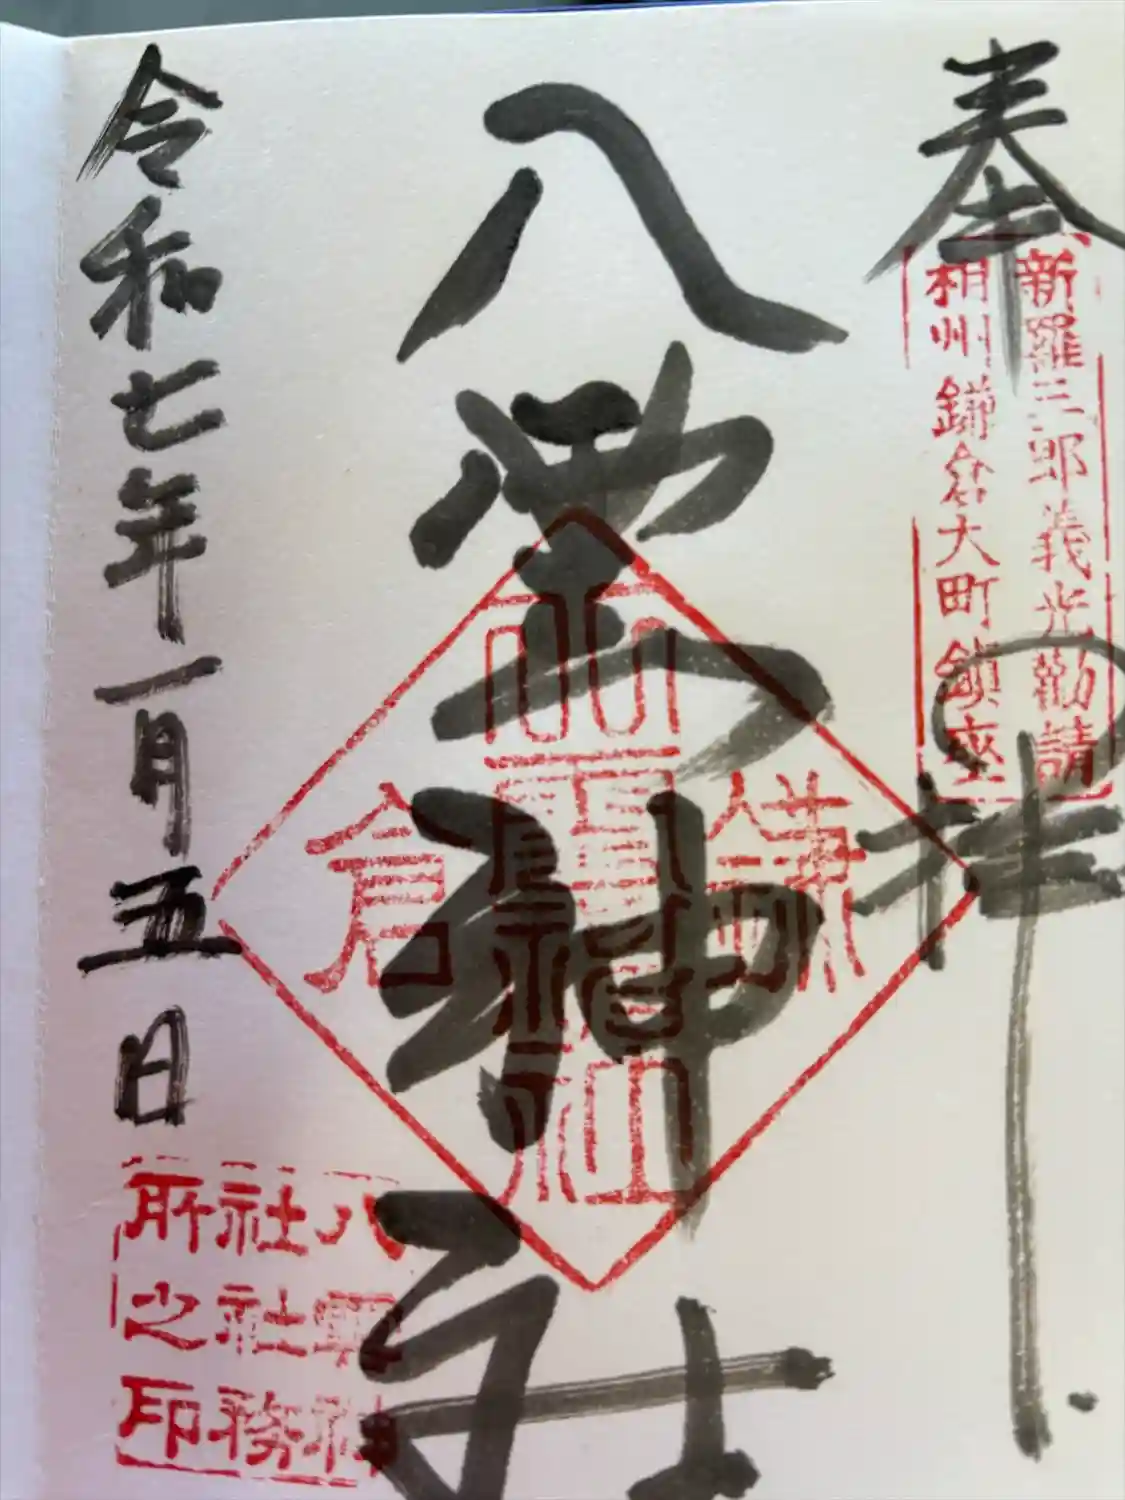 奉拝
新羅三郎義光勸請
相州鎌倉大町鎭座
八雲神社
鎌
八雲神社
倉
令和七年一月五日
八雲神
社社務
所之印